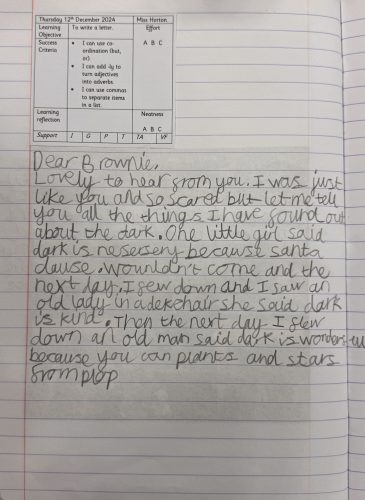 Thursday 12th December 2024 Miss Horton
Learning Objective To write a letter. Effort
Success Criteria A B C
• I can use co-ordination (but, or)
• I can add -ly to turn adjectives into adverbs.
• I can use commas to separate items in a list.
Learning reflection Neatness
A B C
Support I G P T TA VF
Dear Brownie,
Lovely to hear from you. I was just
like you and so scared but let me tell
you all the things I have found out
about the dark. One little girl said
dark is nesersery because santa
clause. wouldn't come and the
next day. I flew down and I saw an
old lady in a dekchair she said dark
is kind. Then the next day I flew
down an old man said dark is
because you can plants and stars
from plop